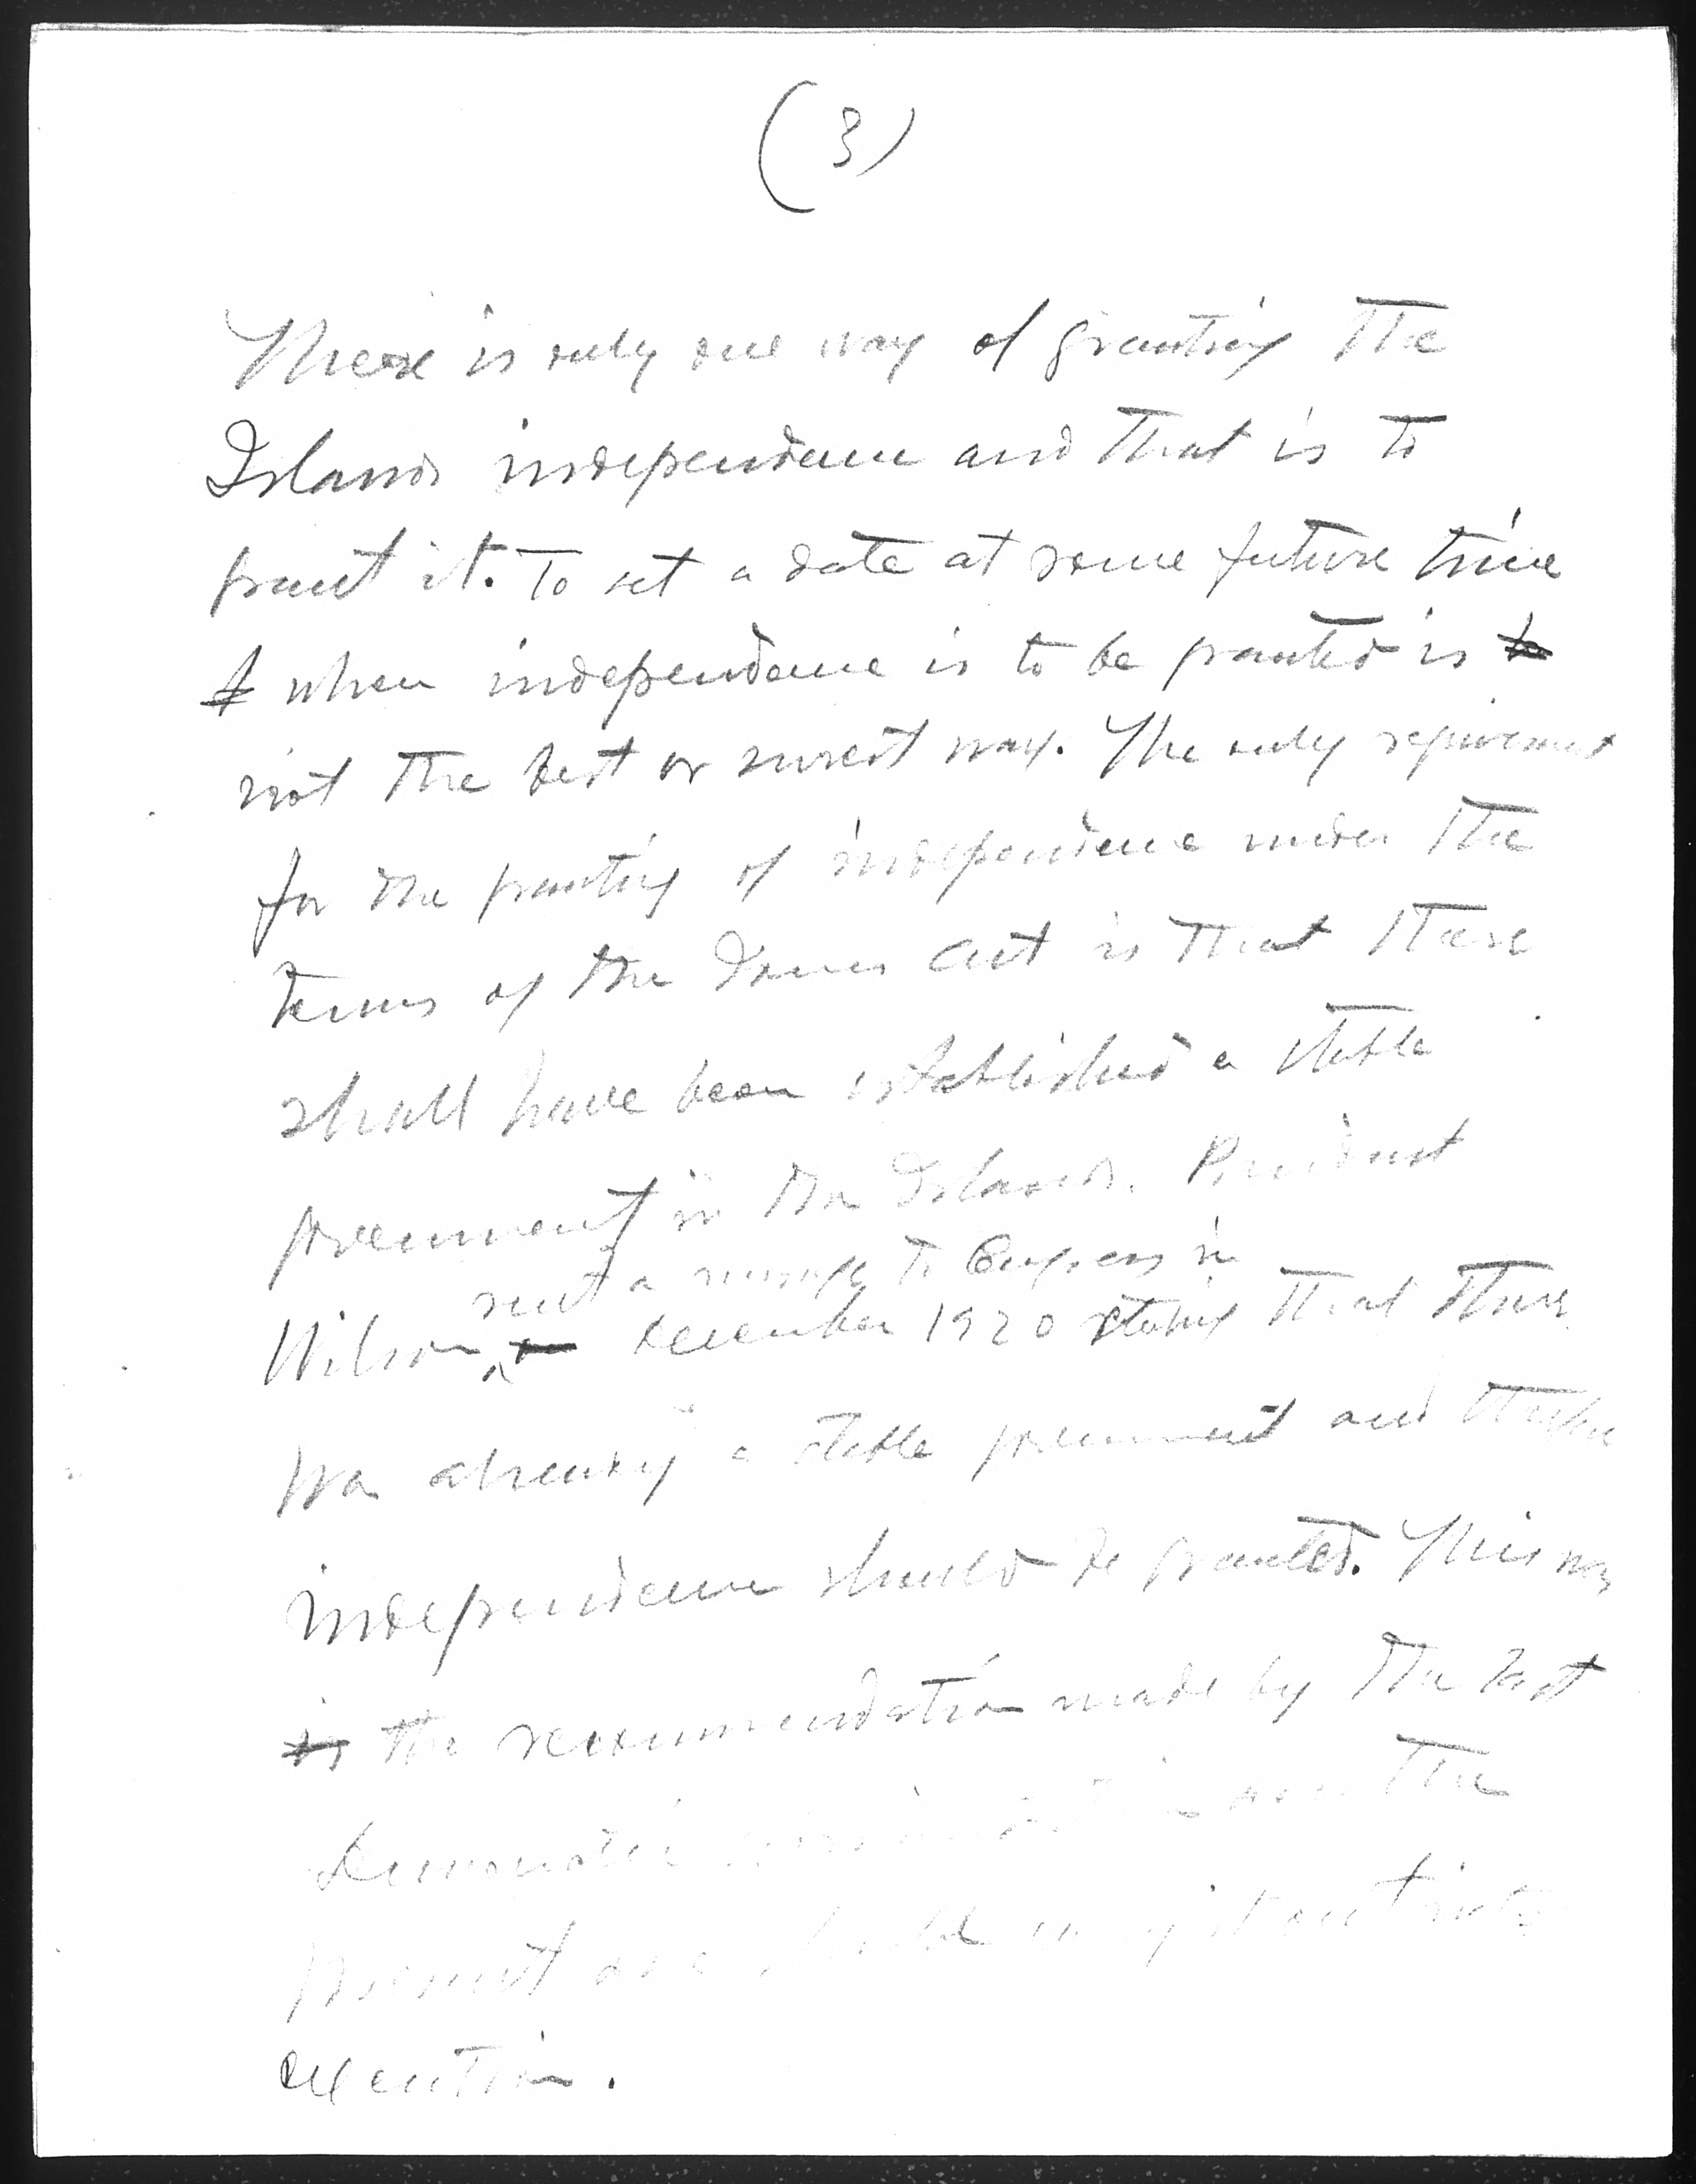 (3)
There is only one way of granting the
Islands independence and that is to
grant it. To set a date at some future time
when independence is to be granted is to
not the best or surest way. The only requirement
for the granting of independence under the
terms of the Jones Act is that there
shall have been established a stable
government in the Islands. President
sent a message to Congress in
Wilson December 1920 stating that there
was already a stable government and that
independence should be granted. This was
is the recommendation made by the last
Democratic administration and the
present one should carry it out into
execution.